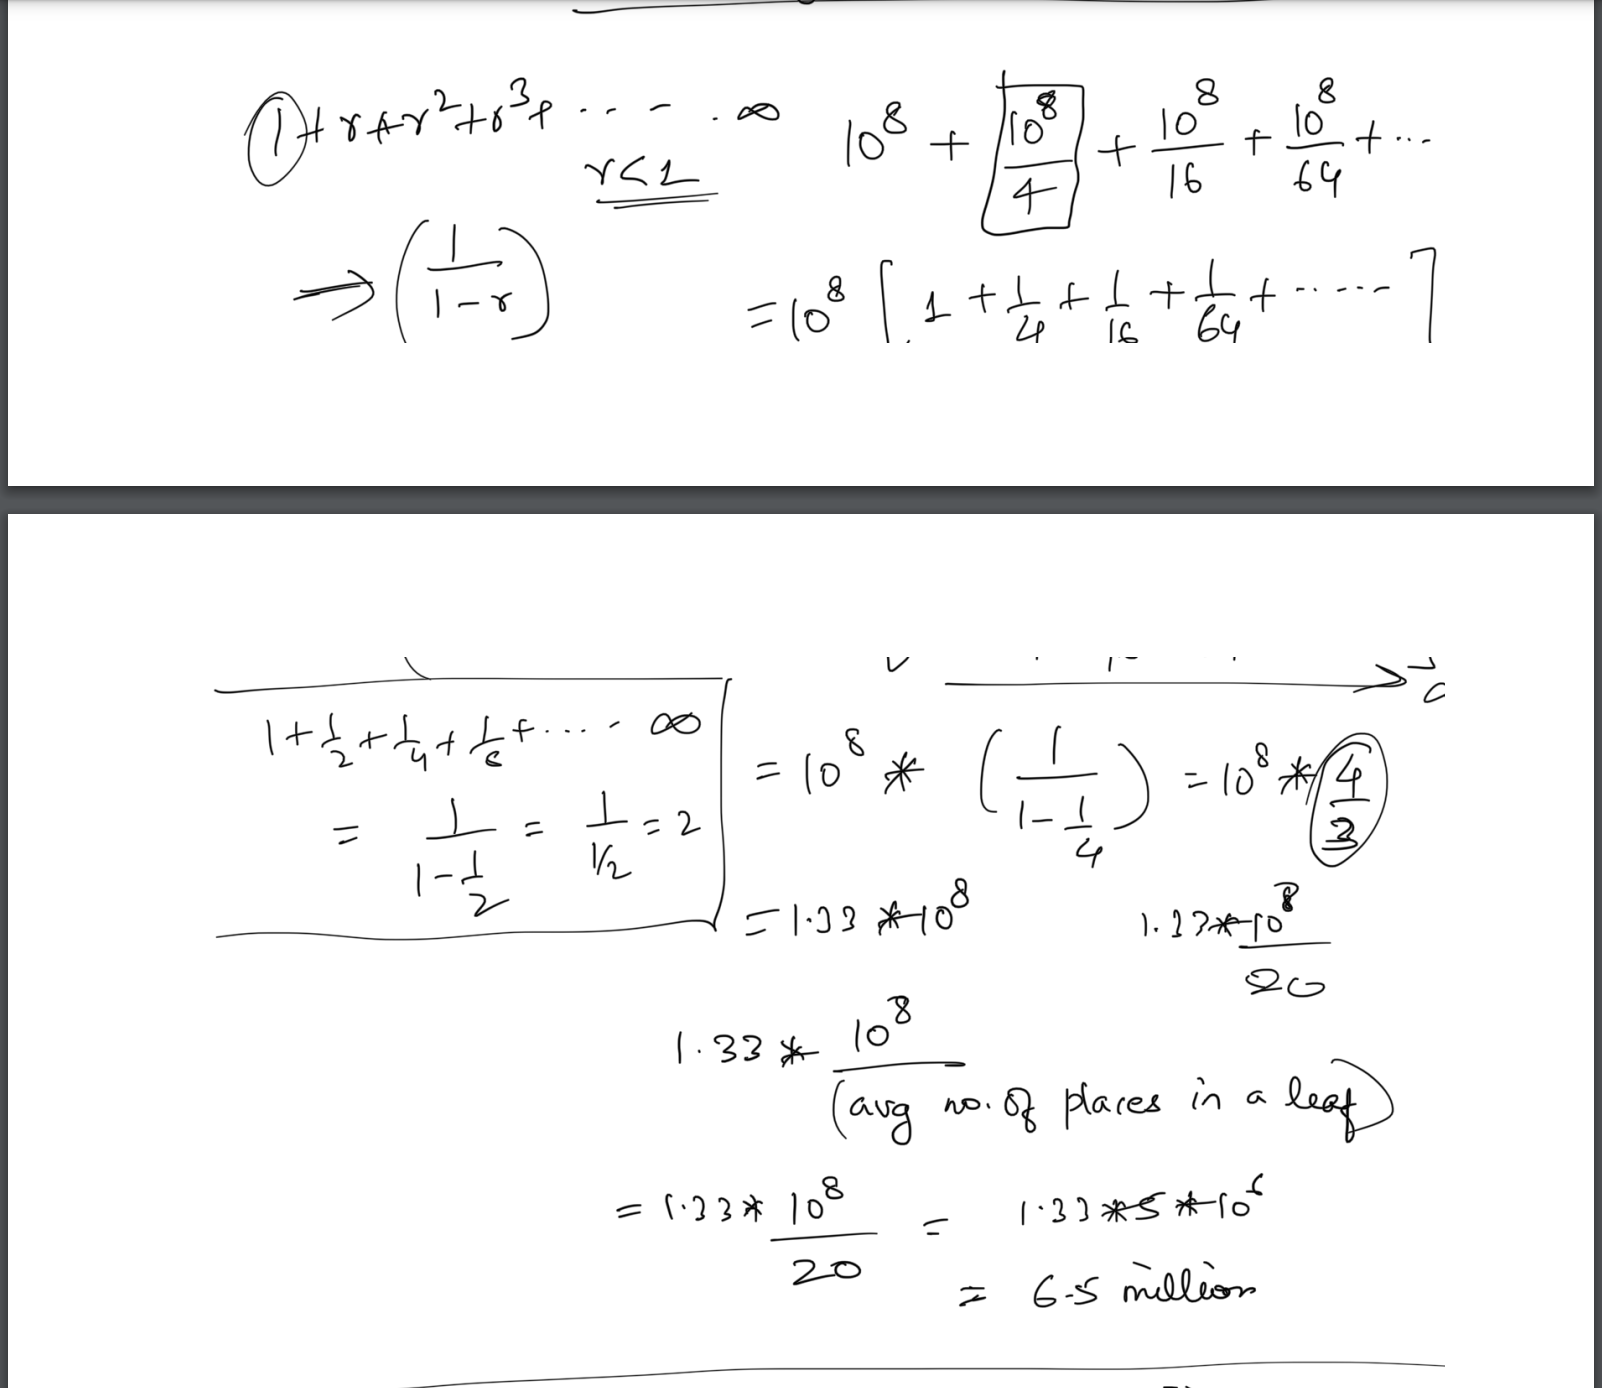 1 + r + r² + r³ + ... ∞
r < 1
⇒ (1/(1-r))
10⁸ + 10⁸/4 + 10⁸/16 + 10⁸/64 + ...
= 10⁸ [1 + 1/4 + 1/16 + 1/64 + ......]
1 + 1/2 + 1/4 + 1/8 + .... ∞
= 1/(1-1/2) = 1/(1/2) = 2
= 10⁸ * (1/(1-1/4)) = 10⁸ * 4/3
= 1.33 * 10⁸
1.33 * 10⁸/20
1.33 * 10⁸/(avg no. of places in a leaf)
= 1.33 * 10⁸/20 = 1.33 * 5 * 10⁶
= 6.5 million